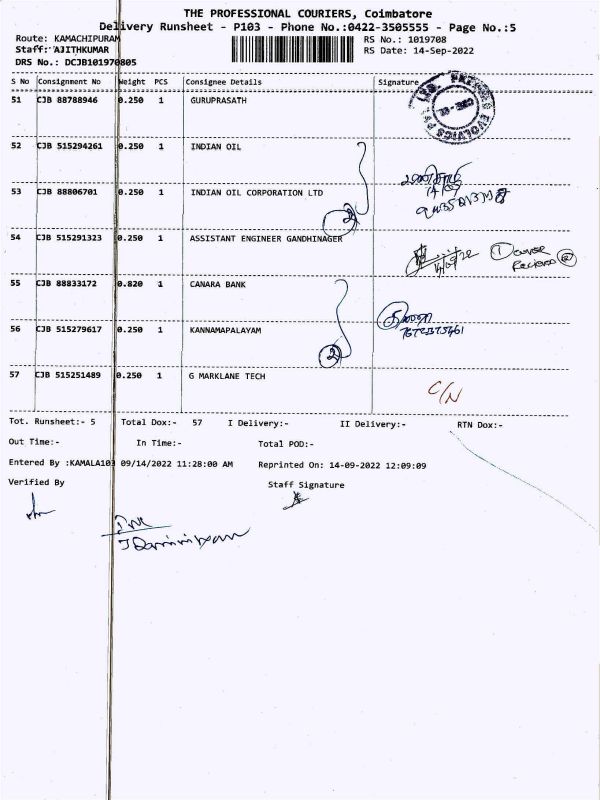 THE PROFESSIONAL COURIERS, Coimbatore
Delivery Runsheet - P103 - Phone No.:0422-3505555 - Page No.:5
Route: KAMACHIPURAM RS No.: 1019708
Staff: AJITHKUMAR RS Date: 14-Sep-2022
DRS No.: DCJB101970805
S No Consignment No Weight PCS Consignee Details Signature
51 CJB 88788946 0.250 1 GURUPRASATH
52 CJB 515294261 0.250 1 INDIAN OIL
53 CJB 88806701 0.250 1 INDIAN OIL CORPORATION LTD
2
54 CJB 515291323 0.250 1 ASSISTANT ENGINEER GANDHINAGER
1
55 CJB 88833172 0.820 1 CANARA BANK
56 CJB 515279617 0.250 1 KANNAMAPALAYAM
2
57 CJB 515251489 0.250 1 G MARKLANE TECH
C/N
Tot. Runsheet:- 5 Total Dox:- 57 I Delivery:- II Delivery:- RTN Dox:-
Out Time:- In Time:- Total POD:-
Entered By :KAMALA103 09/14/2022 11:28:00 AM Reprinted On: 14-09-2022 12:09:09
Verified By Staff Signature